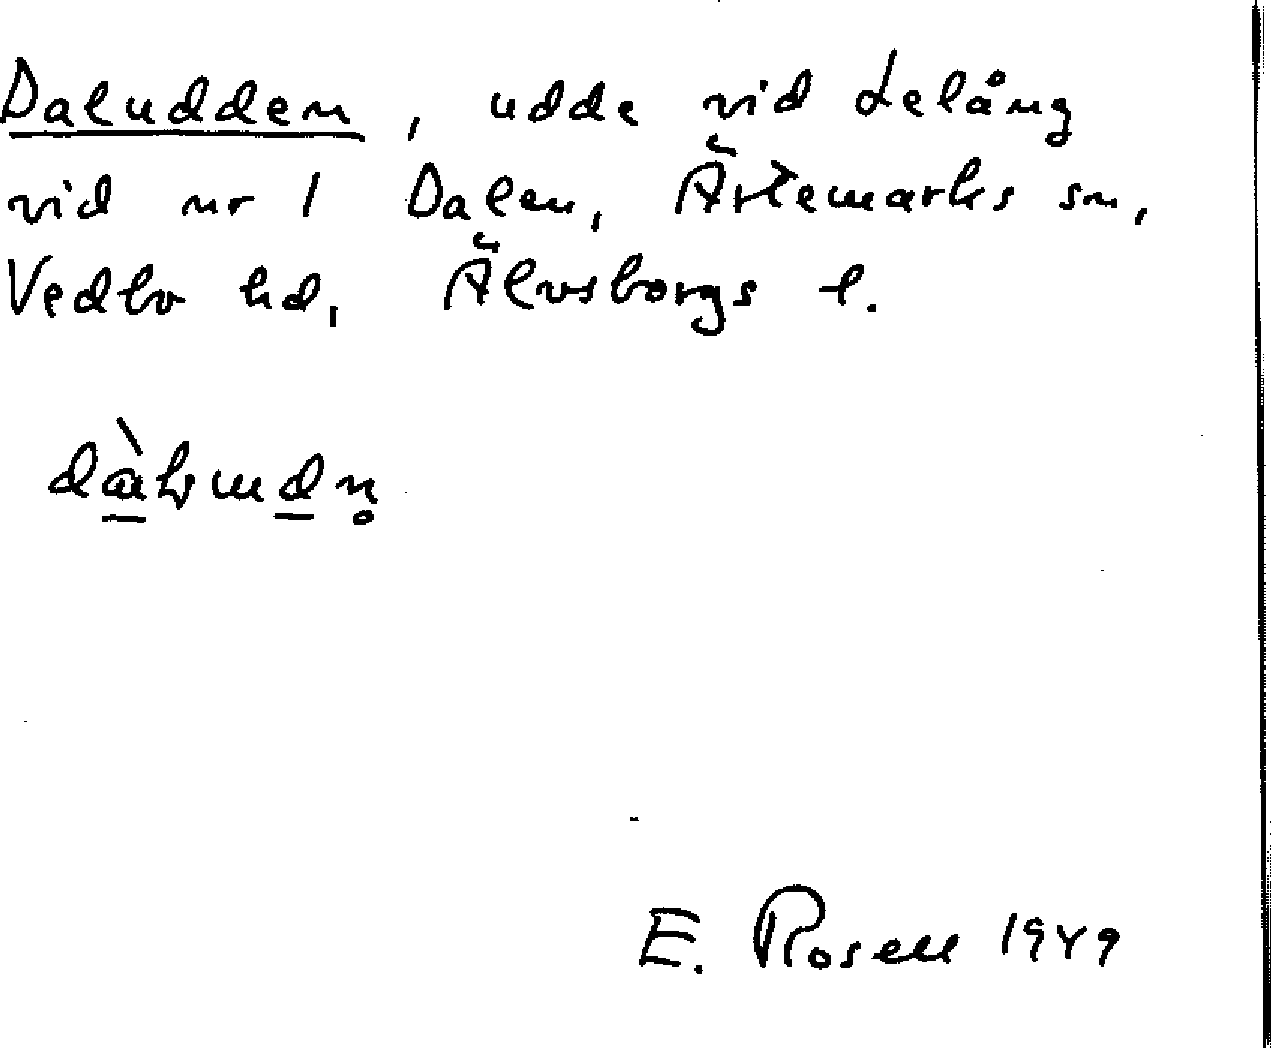 Daludden, udde vid Lelång
vid nr 1 Dalen, Ärtemarks sn,
Vedbo hd, Älvsborgs l.
E. Rosell 1949